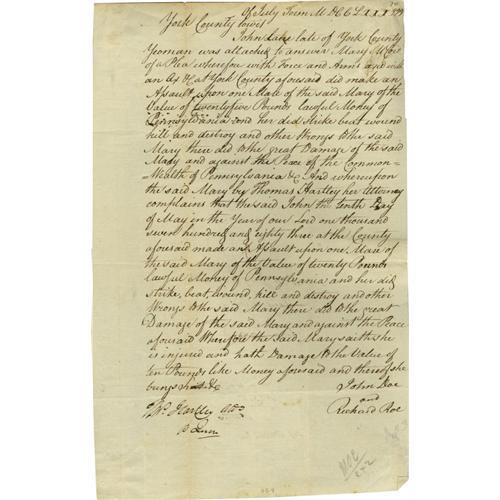 Of July Term MDCCLXXXIII
York County towit
John Lake late of York County
Yeoman was attached to answer Mary
of a Plea wherefore with Force and Arms and with
an Ax &c at York County aforesaid did made an
Assault upon one Mare of the said Mary of the
Value of twenty five Pounds lawful Money of
Pennsylvania and her did strike beat wound
kill and destroy and other Wrongs to the said
Mary there did to the great Damage of the said
Mary and against the Peace of the Common=
Wealth of Pennsylvania &c. And whereupon
the said Mary by Thomas Hartley her Attorney
complains that the said John the tenth Day
of May in the Year of our Lord one thousand
seven hundred and eighty three at the County
aforesaid made an Assault upon one Mare of
the said Mary of the Value of twenty Pounds
lawful Money of Pennsylvania and her did
strike, beat, wound, kill and destroy and other
Wrongs to the said Mary there did to the great
Damage of the said Mary and against the Peace
aforesaid Wherefore the said Mary saith she
is injured and hath Damage to the Value of
ten Pounds like Money aforesaid and thereof she
brings suit &c
John Doe
and
Richard Roe
Hartley